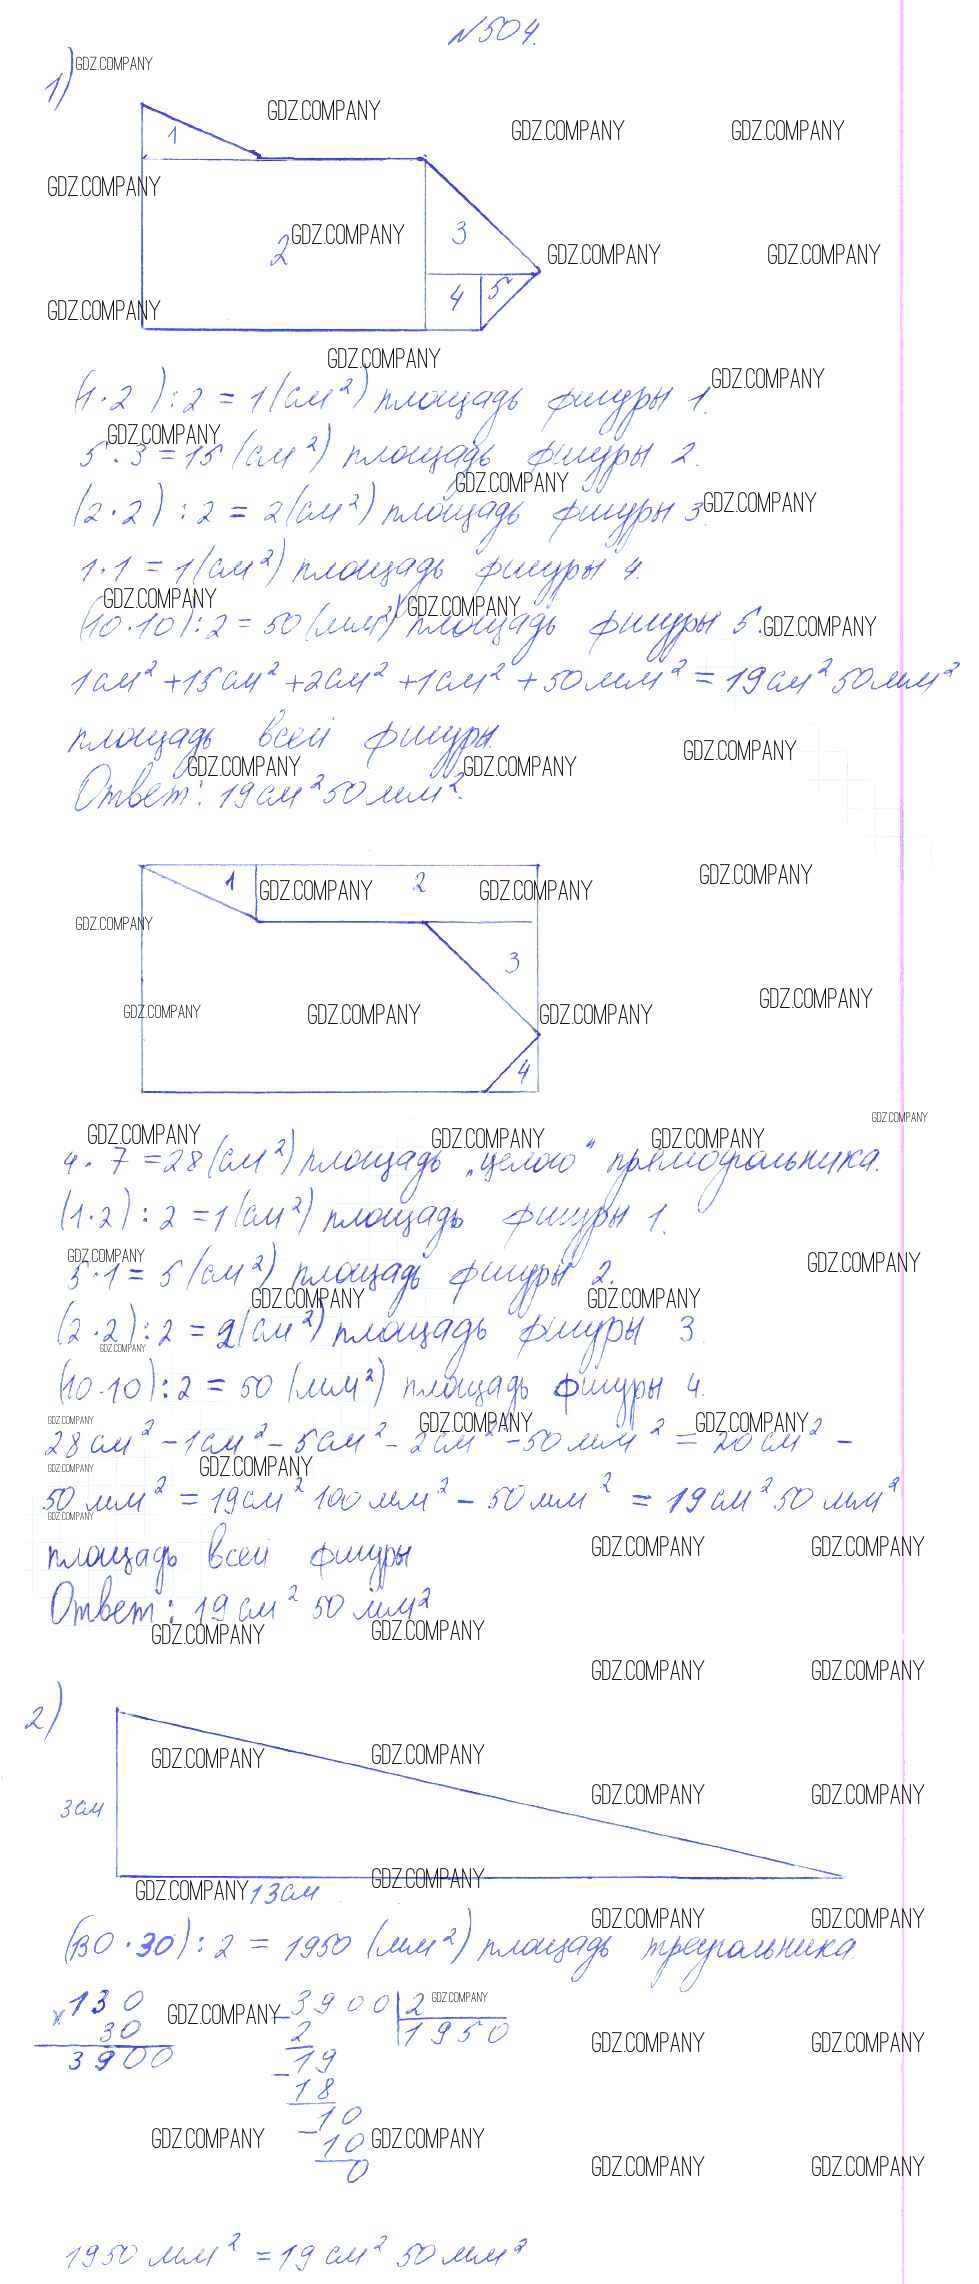 №504.
1)
1
2
3
4
5
(1·2):2=1(см²) площадь фигуры 1.
5·3=15(см²) площадь фигуры 2.
(2·2):2=2(см²) площадь фигуры 3.
1·1=1(см²) площадь фигуры 4.
(10·10):2=50(мм²) площадь фигуры 5.
1см²+15см²+2см²+1см²+50мм²=19см²50мм²
площадь всей фигуры.
Ответ: 19см²50мм².
1
2
3
4
4·7=28(см²) площадь „целого“ прямоугольника.
(1·2):2=1(см²) площадь фигуры 1.
5·1=5(см²) площадь фигуры 2.
(2·2):2=2(см²) площадь фигуры 3.
(10·10):2=50(мм²) площадь фигуры 4.
28см²-1см²-5см²-2см²-50мм²=20см²-
50мм²=19см²100мм²-50мм²=19см²50мм²
площадь всей фигуры
Ответ: 19см²50мм²
2)
3см
13см
(130·30):2=1950(мм²) площадь треугольника.
×130
30
3900
-3900|2
2 1950
-19
18
-10
10
0
1950мм²=19см²50мм²
GDZ.COMPANY